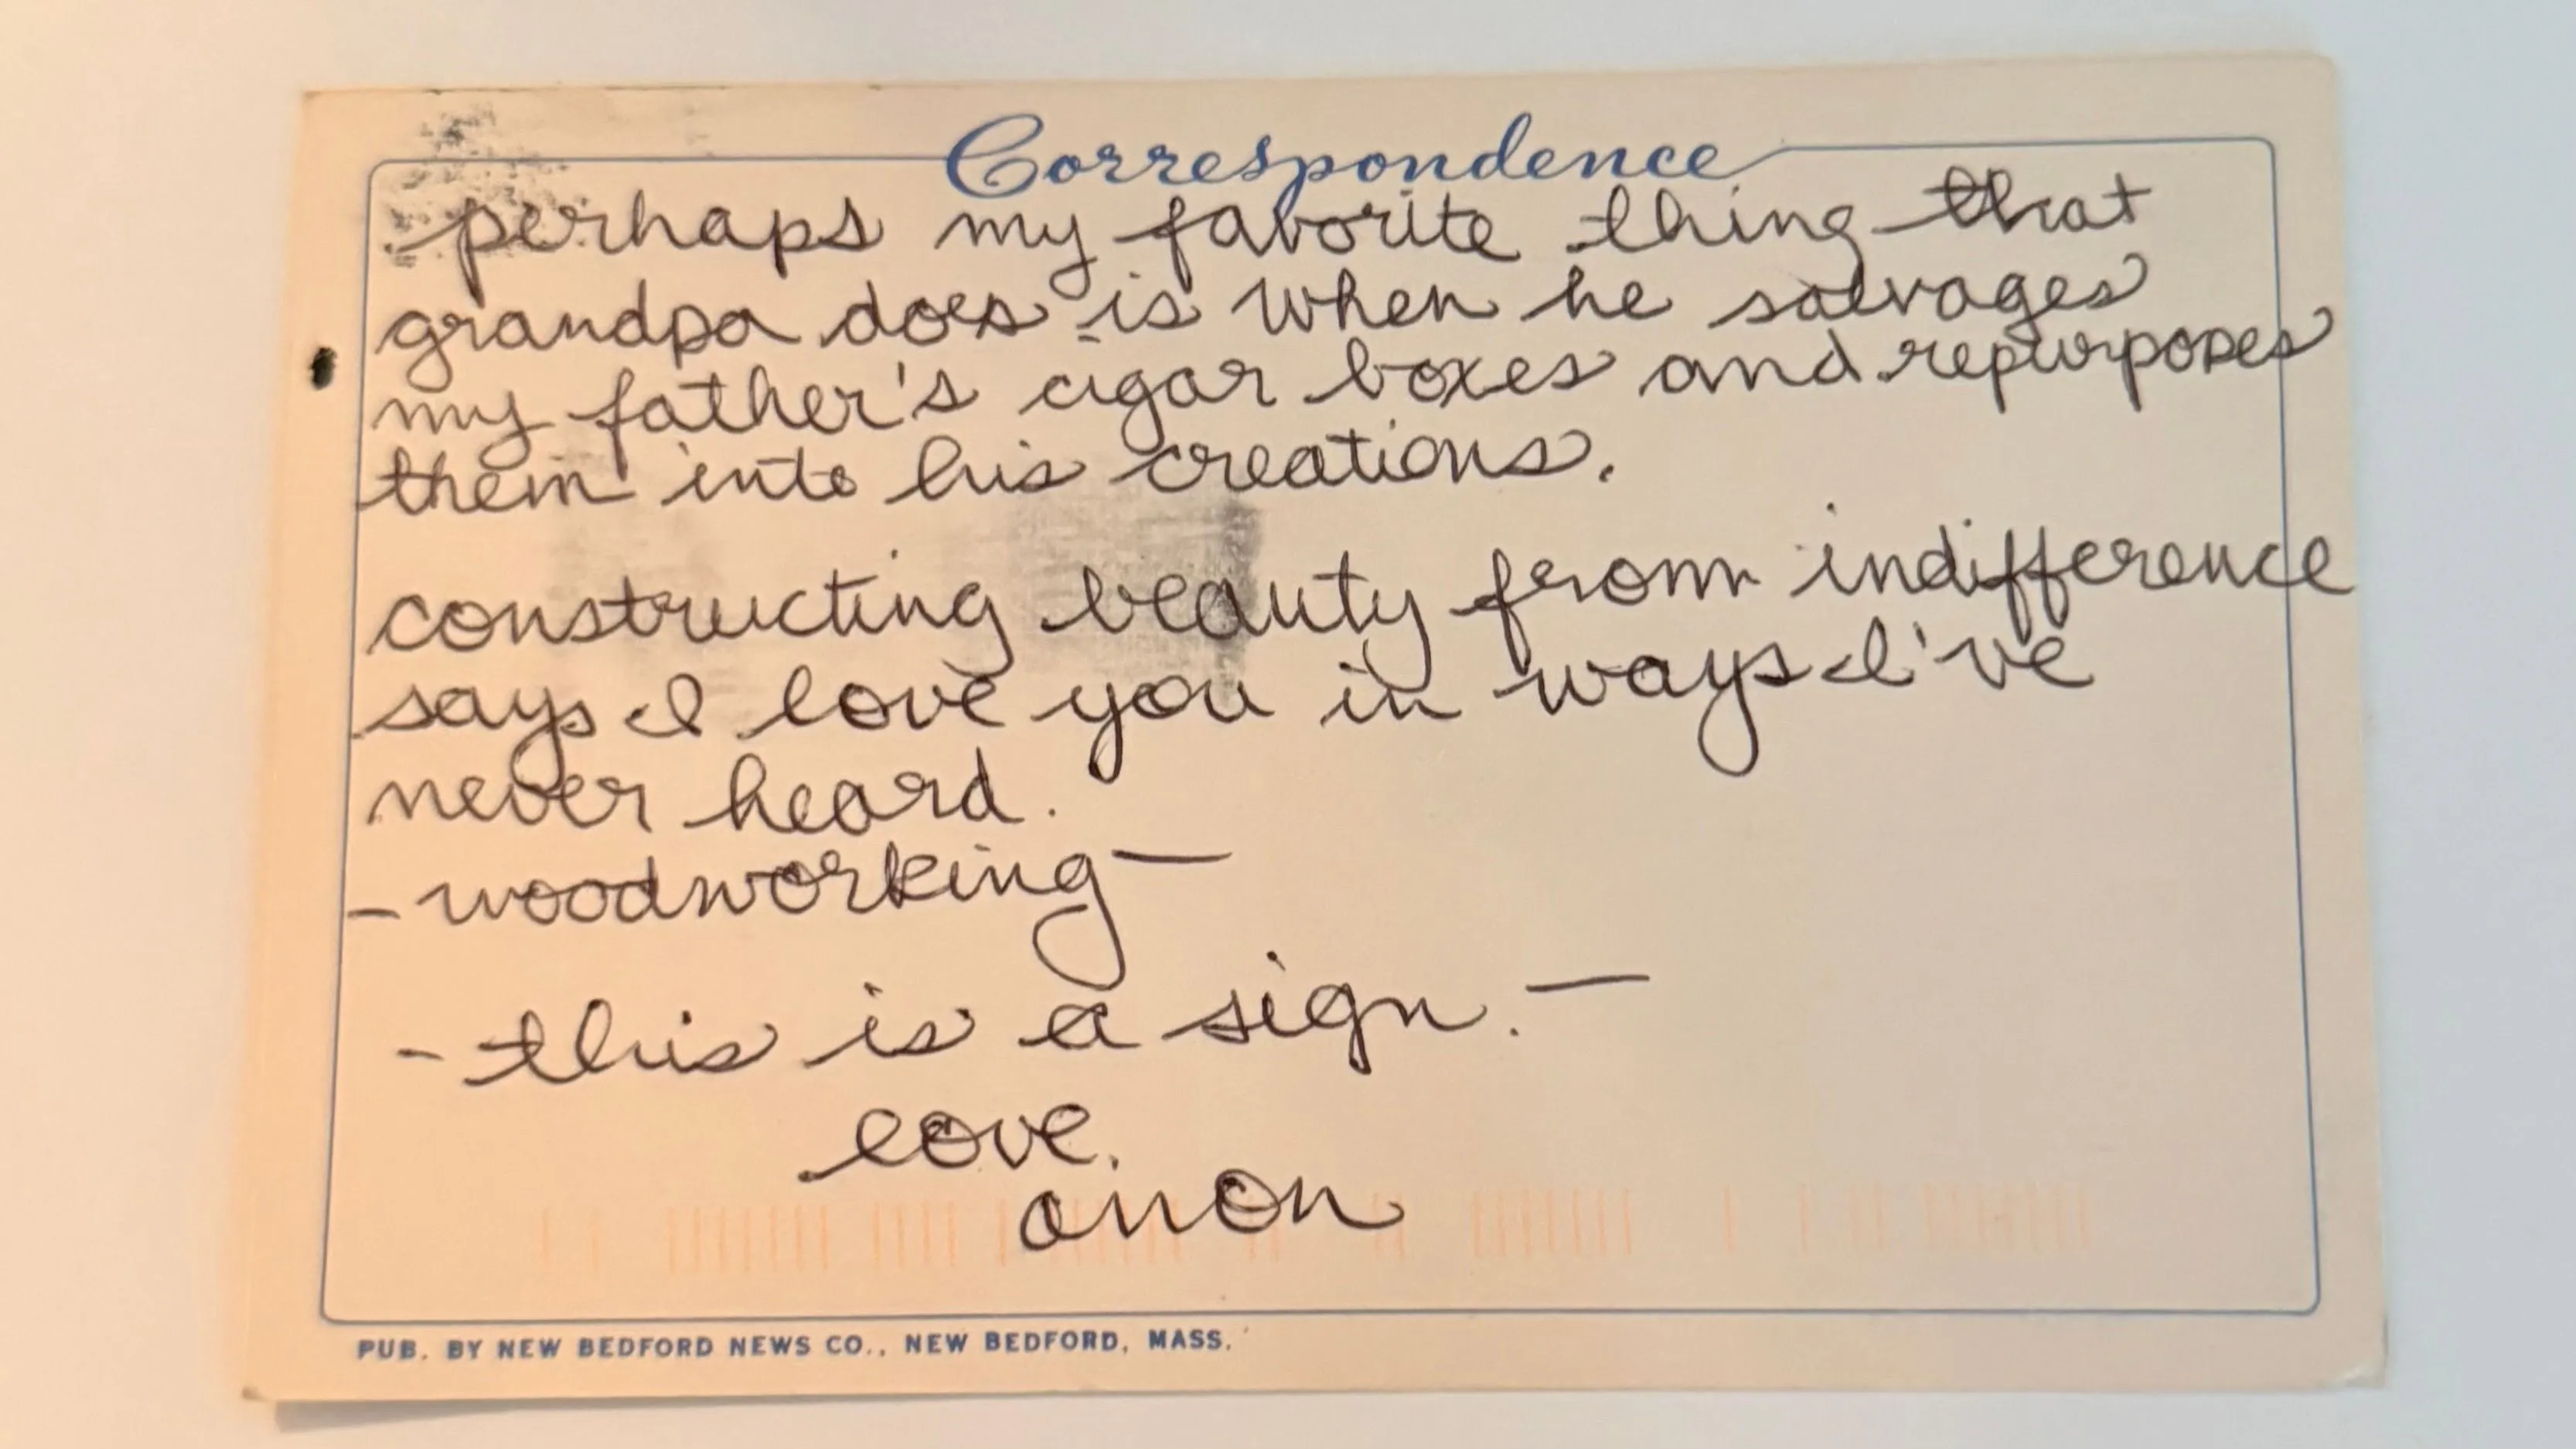 Correspondence
perhaps my favorite thing that
grandpa does is when he salvages
my father's cigar boxes and repurposes
them into his creations.
constructing beauty from indifference
says I love you in ways I've
never heard.
- woodworking -
- this is a sign. -
love,
anon
PUB. BY NEW BEDFORD NEWS CO., NEW BEDFORD, MASS.